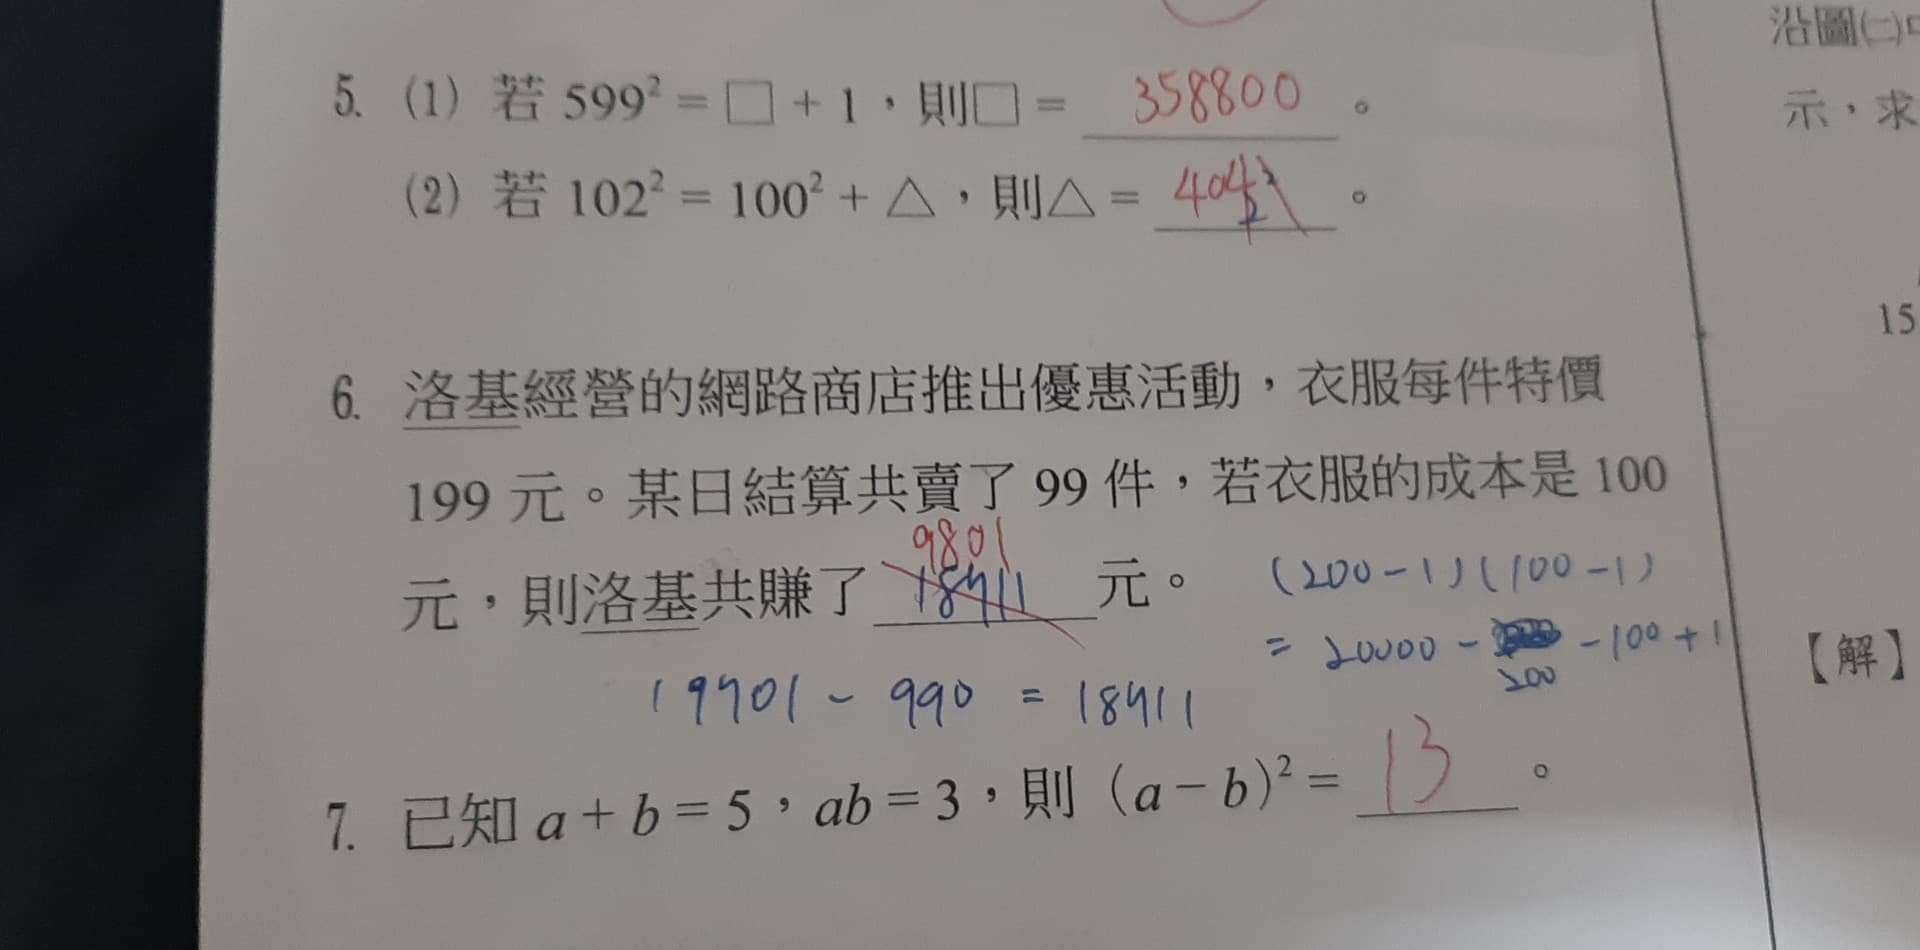 沿圖㈡
5. (1) 若 599² = □ + 1，則□ = 358800 。
示，求
(2) 若 102² = 100² + △，則△ = 404 。
15
6. 洛基經營的網路商店推出優惠活動，衣服每件特價
199 元。某日結算共賣了 99 件，若衣服的成本是 100
9801
元，則洛基共賺了 18911 元。 (200-1)(100-1)
= 20000 - 200 - 100 + 1
【解】
19701 - 990 = 18911
7. 已知 a + b = 5，ab = 3，則 (a - b)² = 13 。